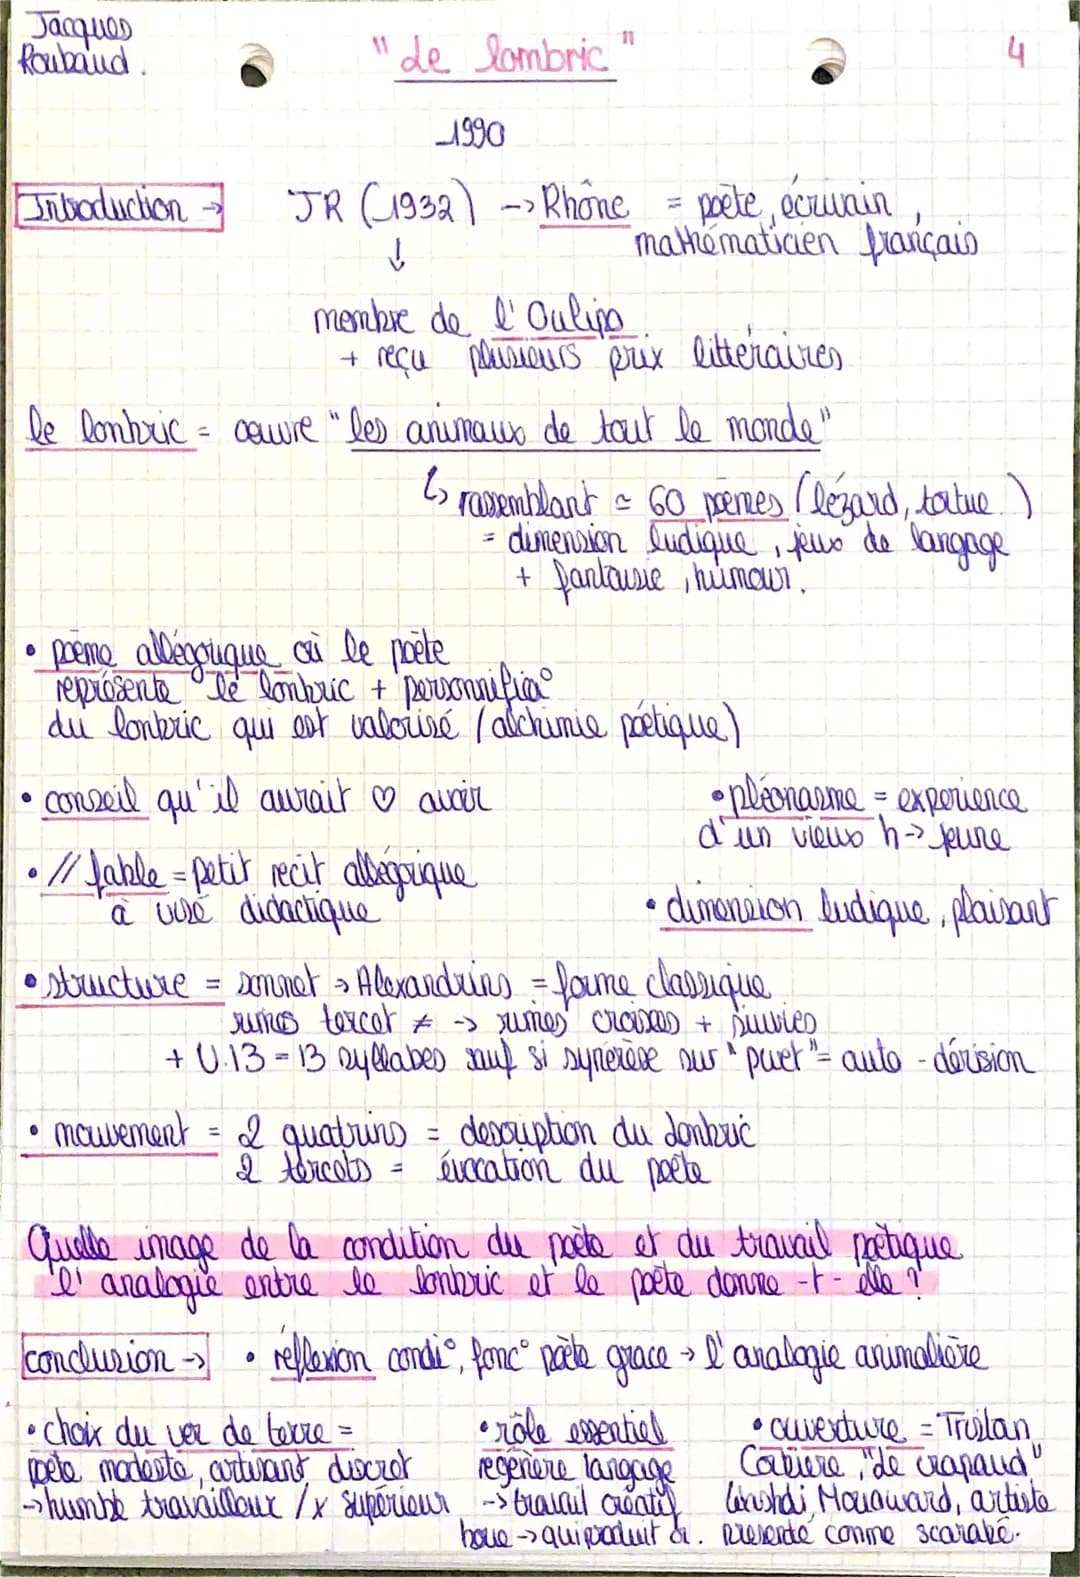 Jacques
Roubaud.
"de lombric"
4
1990
Introduction → JR (1932) → Rhône = poète, écrivain,
mathématicien français
↓
membre de l'Oulipo
+ reçu plusieurs prix littéraires
le lombric = œuvre "les animaux de tout le monde"
↳ rassemblant = 60 poèmes (lézard, tortue.)
= dimension ludique, jeux de langage
+ fantaisie, humour.
• poème allégorique où le poète
représente le lombric + personnifica°
du lombric qui est valorisé (alchimie poétique)
• conseil qu'il aurait ♡ avoir
• pléonasme = experience
d'un vieux h → jeune
• // fable = petit recit allégorique
à visé didactique
• dimension ludique, plaisant
• structure = sonnet → Alexandrins = forme classique
rimes tercet ≠ → rimes croisées + suivies
+ V.13 = 13 syllabes sauf si synérèse sur "puet" = auto-dérision
• mouvement = 2 quatrins = description du lombric
2 tercets = évocation du poète
Quelle image de la condition du poète et du travail poètique
l'analogie entre le lombric et le poète donne-t-elle ?
conclusion → • réflexion condi°, fonc° poète grace → l'analogie animalière
• choix du ver de terre =
poète modeste, artisant discrot
→ humble travailleur /x supérieur
• rôle essentiel
régénère langage
→ travail créatif
boue → qui produit or.
• ouverture = Tristan
Corbière, "de crapaud"
Mouaward, artiste
présenté comme scarabé.